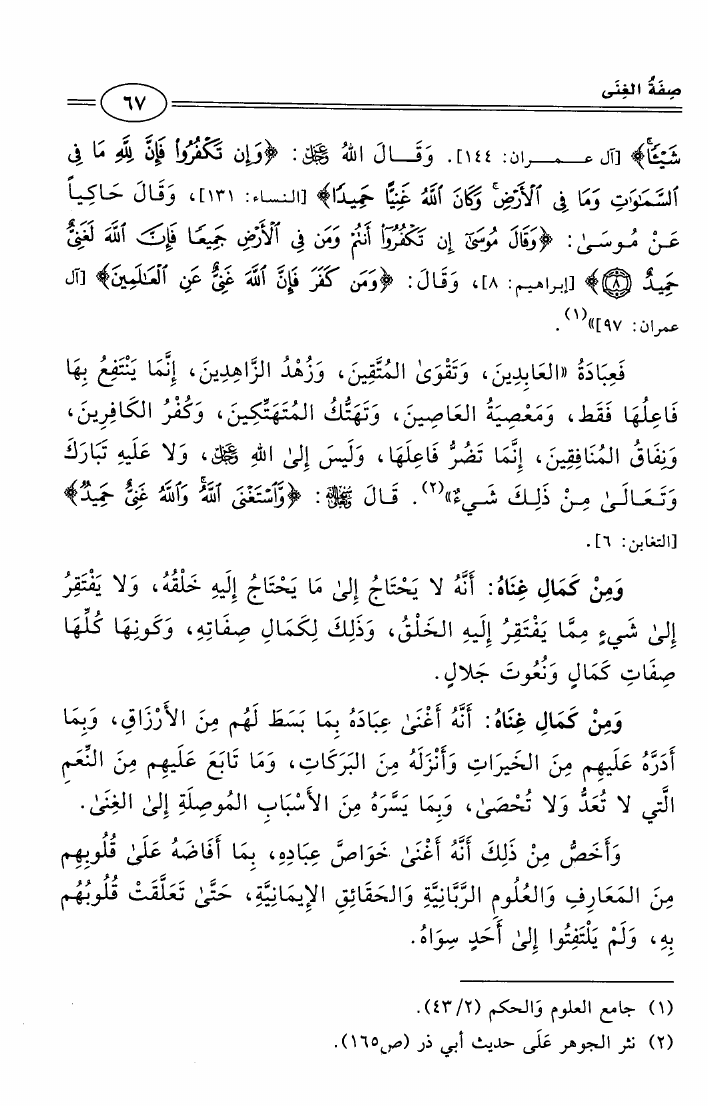 صِفَةُ الغِنَى
٦٧
شَيْـًٔاۗ﴾ [آل عـمـران: ١٤٤]. وَقَـالَ اللهُ ﷻ: ﴿وَإِن تَكْفُرُوا۟ فَإِنَّ لِلَّهِ مَا فِى
ٱلسَّمَـٰوَٰتِ وَمَا فِى ٱلْأَرْضِۚ وَكَانَ ٱللَّهُ غَنِيًّا حَمِيدًا﴾ [النساء: ١٣١]، وَقَالَ حَاكِياً
عَنْ مُوسَىٰ: ﴿وَقَالَ مُوسَىٰٓ إِن تَكْفُرُوٓا۟ أَنتُمْ وَمَن فِى ٱلْأَرْضِ جَمِيعًا فَإِنَّ ٱللَّهَ لَغَنِىٌّ
حَمِيدٌ ۝٨﴾ [إبراهيم: ٨]، وَقَالَ: ﴿وَمَن كَفَرَ فَإِنَّ ٱللَّهَ غَنِىٌّ عَنِ ٱلْعَـٰلَمِينَ﴾ [آل
عمران: ٩٧]»(١).
فَعِبَادَةُ «العَابِدِينَ، وَتَقْوَىٰ المُتَّقِينَ، وَزُهْدُ الزَّاهِدِينَ، إِنَّمَا يَنْتَفِعُ بِهَا
فَاعِلُهَا فَقَط، وَمَعْصِيَةُ العَاصِينَ، وَتَهَتُّكُ المُتَهَتِّكِينَ، وَكُفْرُ الكَافِرِينَ،
وَنِفَاقُ المُنَافِقِينَ، إِنَّمَا تَضُرُّ فَاعِلَهَا، وَلَيسَ إِلىٰ اللهِ ﷻ، وَلا عَلَيهِ تَبَارَكَ
وَتَعَالَىٰ مِنْ ذَلِكَ شَيءٌ»(٢). قَالَ تَعَالَى: ﴿وَّٱسْتَغْنَى ٱللَّهُۚ وَٱللَّهُ غَنِىٌّ حَمِيدٌ﴾
[التغابن: ٦].
وَمِنْ كَمَالِ غِنَاهُ: أَنَّهُ لا يَحْتَاجُ إِلىٰ مَا يَحْتَاجُ إِلَيهِ خَلْقُهُ، وَلا يَفْتَقِرُ
إِلىٰ شَيءٍ مِمَّا يَفْتَقِرُ إِلَيهِ الخَلْقُ، وَذَلِكَ لِكَمَالِ صِفَاتِهِ، وَكَونِهَا كُلِّهَا
صِفَاتِ كَمَالٍ وَنُعُوتَ جَلالٍ.
وَمِنْ كَمَالِ غِنَاهُ: أَنَّهُ أَغْنَىٰ عِبَادَهُ بِمَا بَسَطَ لَهُم مِنَ الأَرْزَاقِ، وَبِمَا
أَدَرَّهُ عَلَيهِم مِنَ الخَيرَاتِ وَأَنْزَلَهُ مِنَ البَرَكَاتِ، وَمَا تَابَعَ عَلَيهِم مِنَ النِّعَمِ
الَّتي لا تُعَدُّ وَلا تُحْصَىٰ، وَبِمَا يَسَّرَهُ مِنَ الأَسْبَابِ المُوصِلَةِ إِلىٰ الغِنَىٰ.
وَأَخَصُّ مِنْ ذَلِكَ أَنَّهُ أَغْنَىٰ خَوَاصَّ عِبَادِهِ، بِمَا أَفَاضَهُ عَلَىٰ قُلُوبِهِم
مِنَ المَعَارِفِ وَالعُلُومِ الرَّبَّانِيَّةِ وَالحَقَائِقِ الإِيمَانِيَّةِ، حَتَّىٰ تَعَلَّقَتْ قُلُوبُهُم
بِهِ، وَلَمْ يَلْتَفِتُوا إِلىٰ أَحَدٍ سِوَاهُ.
(١) جامع العلوم والحكم (٤٣/٢).
(٢) نثر الجوهر عَلَى حديث أبي ذر (ص١٦٥).